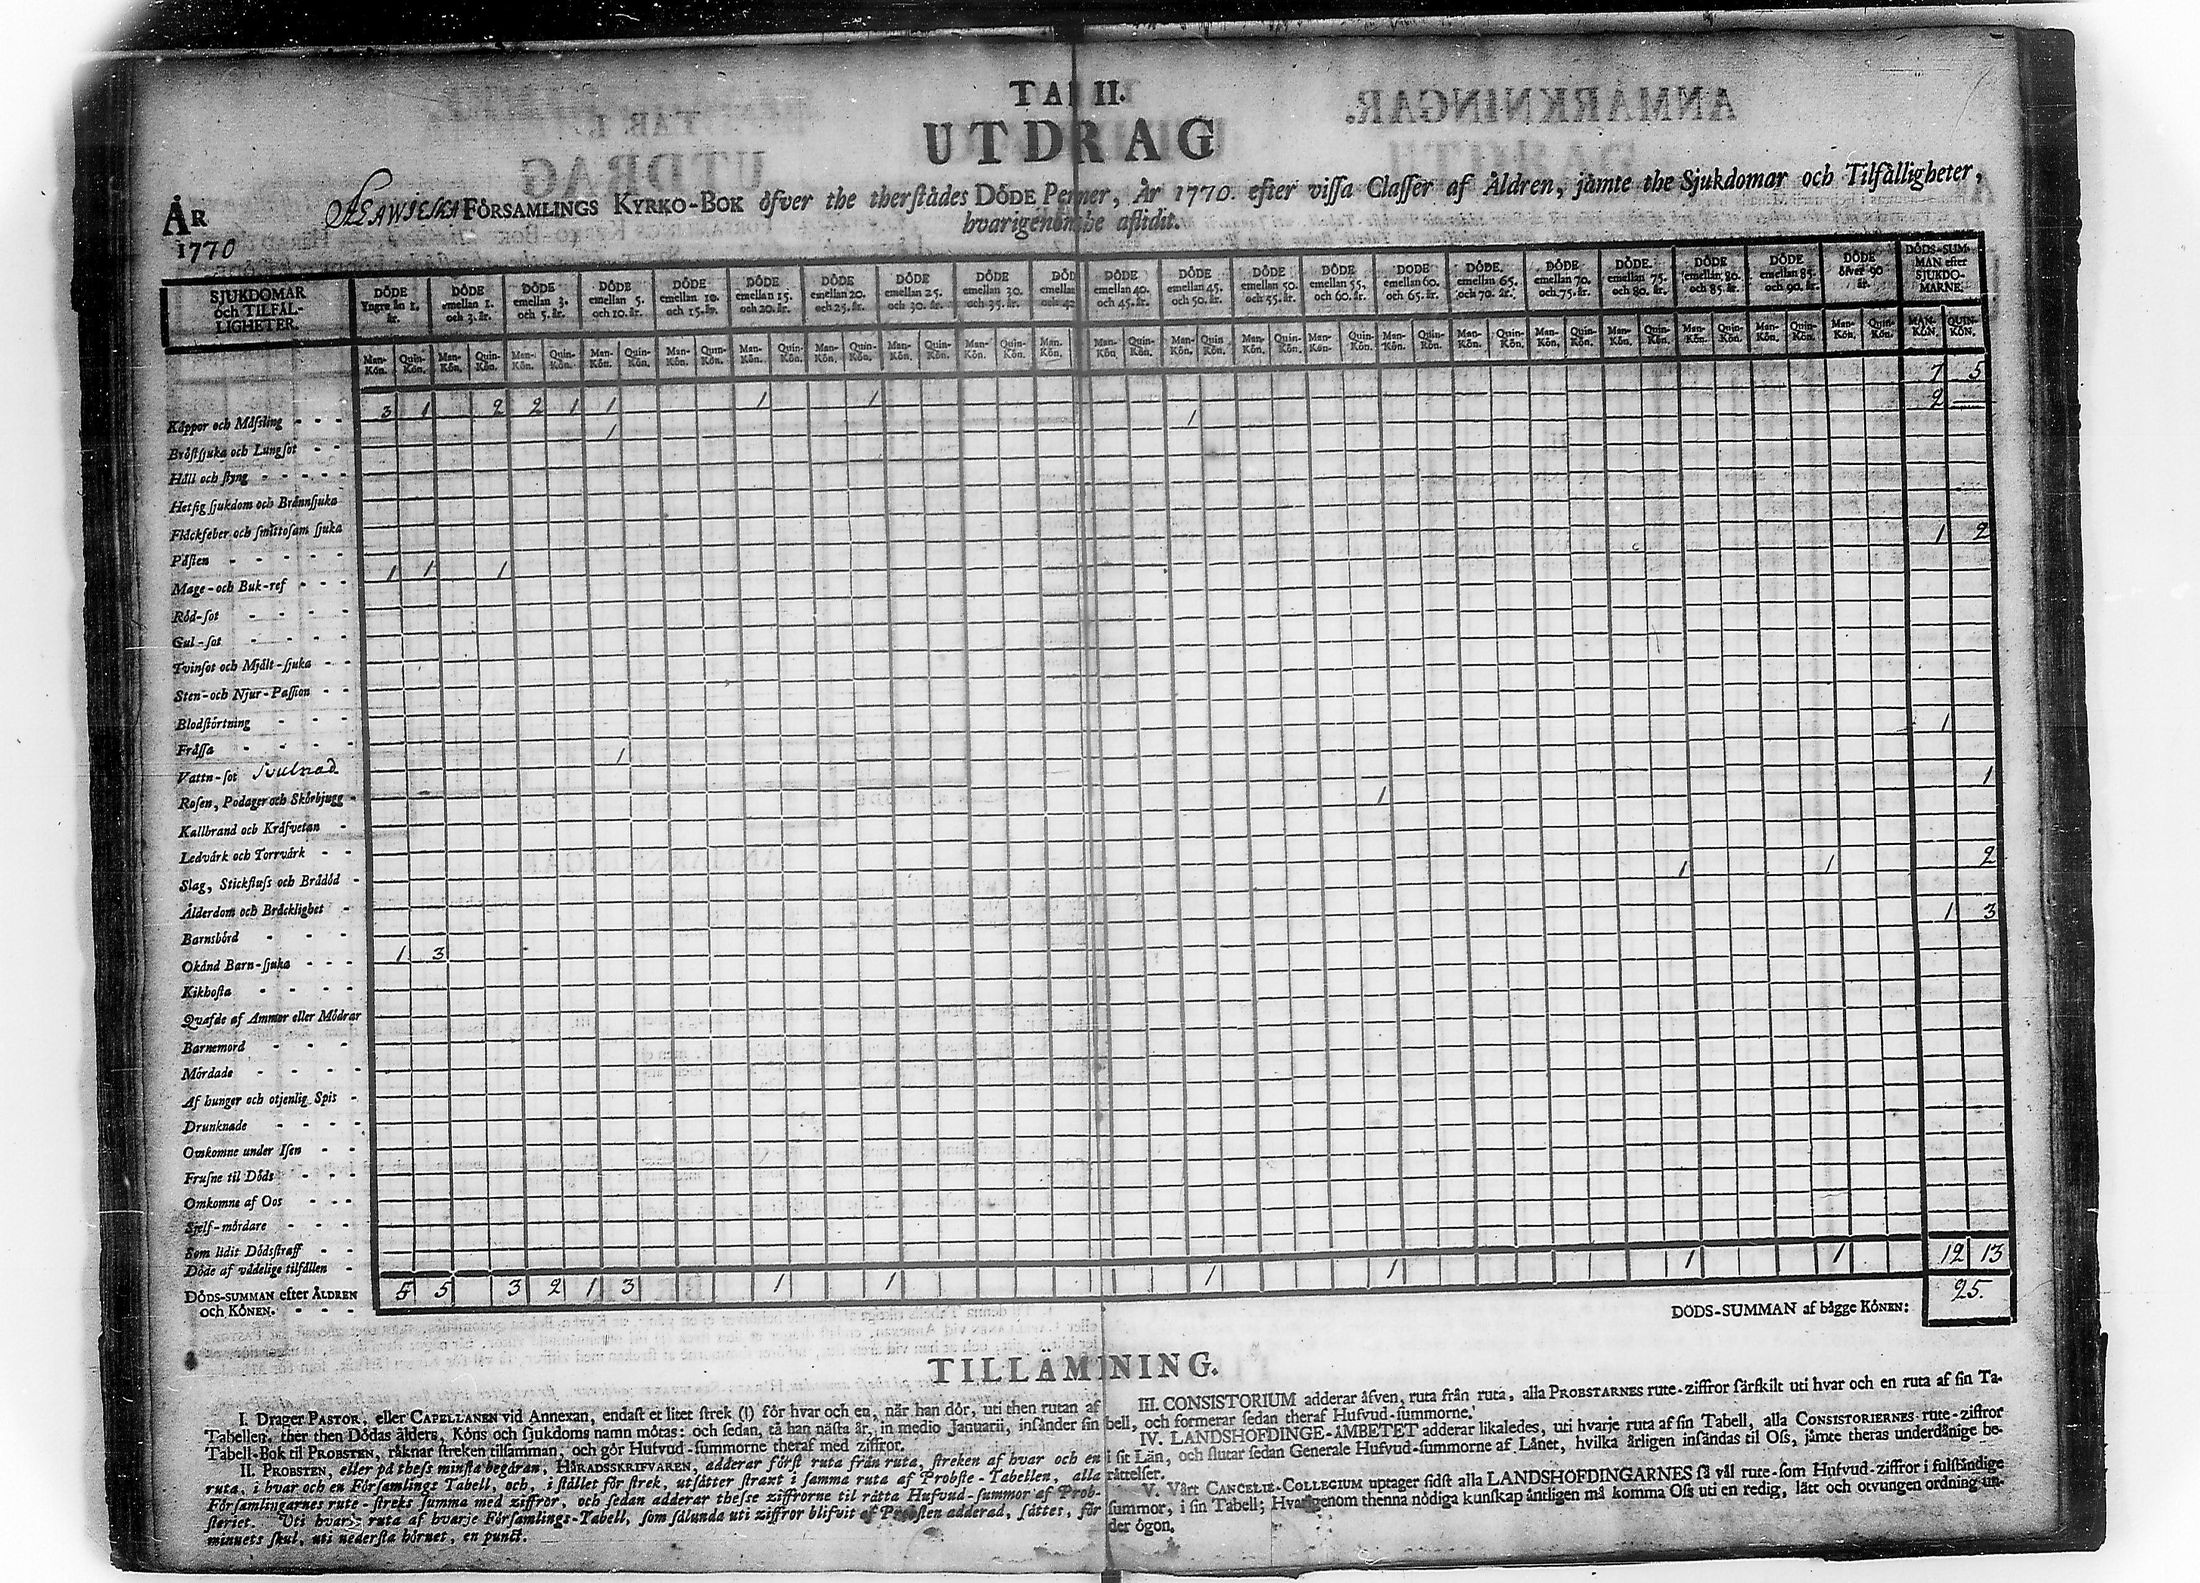 TAB II.
UTDRAG
ÅR
1770
FÖRSAMLINGS KYRKO-BOK öfver the therstädes DÖDE Personer, År 1770. efter vissa Classer af Åldren, jämte the Sjukdomar och Tilfälligheter,
hvarigenom the aflidit.
SJUKDOMAR och TILFÄL-LIGHETER.
DÖDE Yngre än 1. år.
DÖDE emellan 1. och 3. år.
DÖDE emellan 3. och 5. år.
DÖDE emellan 5. och 10. år.
DÖDE emellan 10. och 15. år.
DÖDE emellan 15. och 20. år.
DÖDE emellan 20. och 25. år.
DÖDE emellan 25. och 30. år.
DÖDE emellan 30. och 35. år.
DÖD och 40
DÖDE emellan 40. och 45. år.
DÖDE emellan 45. och 50. år.
DÖDE emellan 50. och 55. år.
DÖDE emellan 55. och 60. år.
DÖDE emellan 60. och 65. år.
DÖDE. emellan 65. och 70. år.
DÖDE emellan 70. och 75. år.
DÖDE. emellan 75. och 80. år.
DÖDE emellan 80. och 85. år.
DÖDE emellan 85. och 90. år.
DÖDE öfver 90 år.
DÖDS-SUM-MAN efter SJUKDO-MARNE.
Man-Kön. Quin-Kön.
7 5
Kåppor och Mässling - - - 3 1 2 2 1 1 1 1 2
Bröstsjuka och Lungsot - - 1 1
Håll och styng - - - -
Hetsig sjukdom och Brännsjuka
Fläckfeber och smittosam sjuka
Pästen - - - - - 1 2
Mage- och Buk-ref - - - 1 1 1
Röd-sot - - - -
Gul-sot - - - -
Tvinsot och Mjält-sjuka - -
Sten- och Njur-Passion - -
Blodstörtning - - -
Frässa - - - - 1
Vattn-sot Svulnad 1
Rosen, Podager och Skörbjugg - 1
Kallbrand och Kräfvetan - 1
Ledvärk och Torrvärk - -
Slag, Stickfluss och Brådöd - 1 1 2
Ålderdom och Bräcklighet -
Barnsbörd - - - 1 3
Okänd Barn-sjuka - - - 1 3
Kikhosta - - - -
Quafde af Ammor eller Mödrar
Barnemord - - -
Mördade - - - -
Af hunger och otjenlig Spis -
Drunknade - - - -
Omkomne under Isen - -
Frusne til Döds - - -
Omkomne af Oos - - -
Sjelf-mördare - - -
Som lidit Dödsstraff - -
Döde af vådelige tilfällen -
DÖDS-SUMMAN efter ÅLDREN och KÖNEN. - - - 5 5 3 2 1 3 1 1 1 1 1 1 12 13
DÖDS-SUMMAN af bägge KÖNEN: 25.
TILLÄMNING.
I. Drager PASTOR, eller CAPELLANEN vid Annexan, endast et litet strek (1) för hvar och en, när han dör, uti then rutan af
Tabellen, ther then Dödas ålders, Köns och sjukdoms namn mötas: och sedan, tå han nästa år, in medio Januarii, insänder sin
Tabell-Bok til PROBSTEN, räknar streken tillsamman, och gör Hufvud-summorne theraf med ziffror.
II. PROBSTEN, eller på thess minsta begäran, HÄRADSSKRIFVAREN, adderar först ruta från ruta, streken af hvar och en
ruta, i hvar och en Församlings Tabell, och, i stället för strek, utsätter straxt i samma ruta af Probste-Tabellen, alla
Församlingarnes rute-streks summa med ziffror, och sedan adderar thesse ziffrorne til rätta Hufvud-summor af Prob-
steriet. Uti hvar ruta af hvarje Församlings-Tabell, som sålunda uti ziffror blifvit af Probsten adderad, sättes, för
minnets skul, uti nedersta hörnet, en punct.
III. CONSISTORIUM adderar äfven, ruta från ruta, alla PROBSTARNES rute-ziffror särskilt uti hvar och en ruta af sin Ta-
bell, och formerar sedan theraf Hufvud-summorne.
IV. LANDSHÖFDINGE-ÄMBETET adderar likaledes, uti hvarje ruta af sin Tabell, alla CONSISTORIERNES rute-ziffror
i sit Län, och slutar sedan Generale Hufvud-summorne af Länet, hvilka årligen insändas til Oss, jämte theras underdånige be-
rättelser.
V. Vårt CANCELIE-COLLEGIUM uptager sidst alla LANDSHÖFDINGARNES så väl rute-som Hufvud-ziffror i fulständige
summor, i sin Tabell; Hvarigenom thenna nödiga kunskap äntligen må komma Oss uti en redig, lätt och otvungen ordning un-
der ögon.